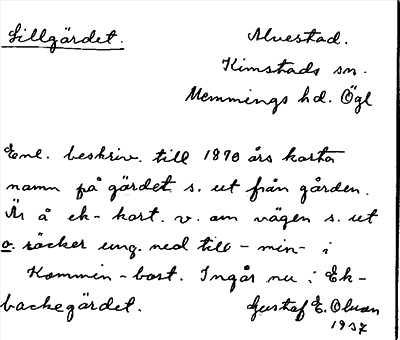 Lillgärdet.
Alvestad.
Kimstads sn.
Memmings hd. Ögl
Enl. beskriv. till 1870 års karta
namn på gärdet s. ut från gården.
Är å ek-kart. v. om vägen s. ut
o. räcker ung. ned till -min- i
Kommin-bost. Ingår nu i Ek-
backegärdet.
Gustaf E. Olsson
1937